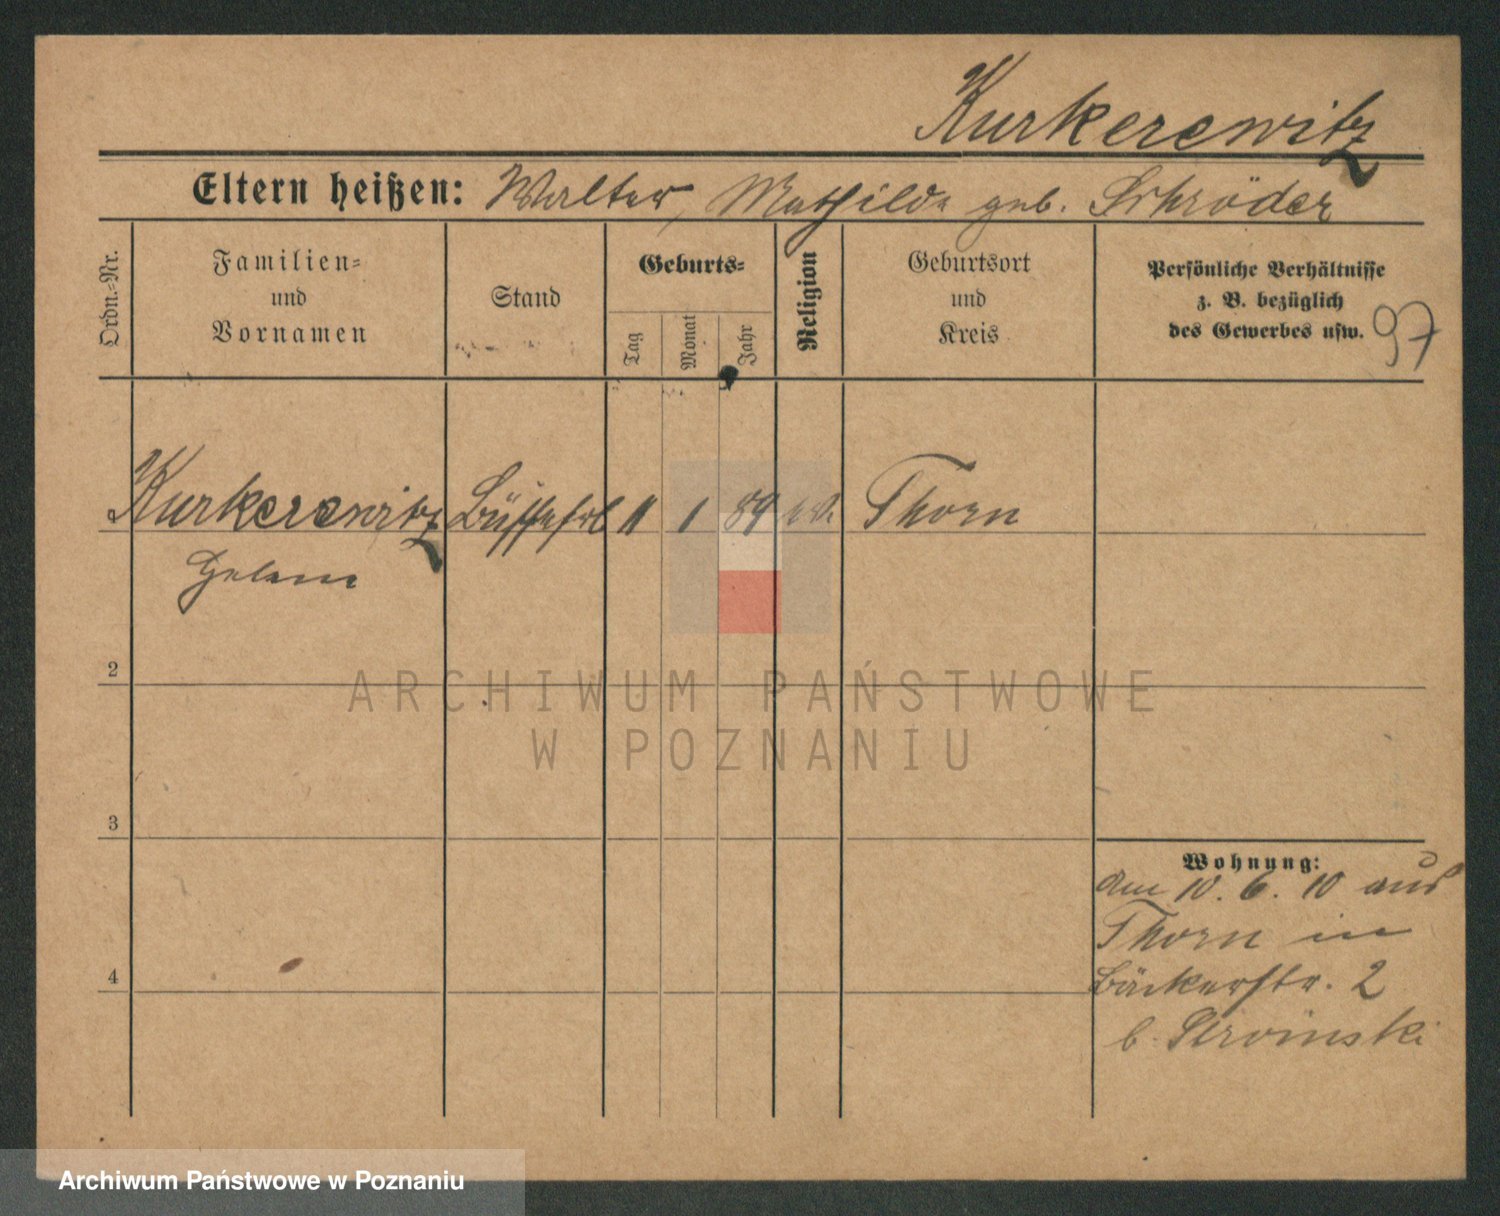 Kurkerewitz
Eltern heißen: Walter, Mathilde geb. Schröder
Ordn.-Nr.
Familien-
und
Vornamen
Stand
Geburts-
Tag
Monat
Jahr
Religion
Geburtsort
und
Kreis
Persönliche Verhältnisse
z. B. bezüglich
des Gewerbes usw.
97
Kurkerewitz 11 1 89 ev. Thorn
Helene
2
ARCHIWUM PAŃSTWOWE
W POZNANIU
3
Wohnung:
am 10. 6. 10 aus
Thorn in
Bäckerstr. 2
b.
4
Archiwum Państwowe w Poznaniu